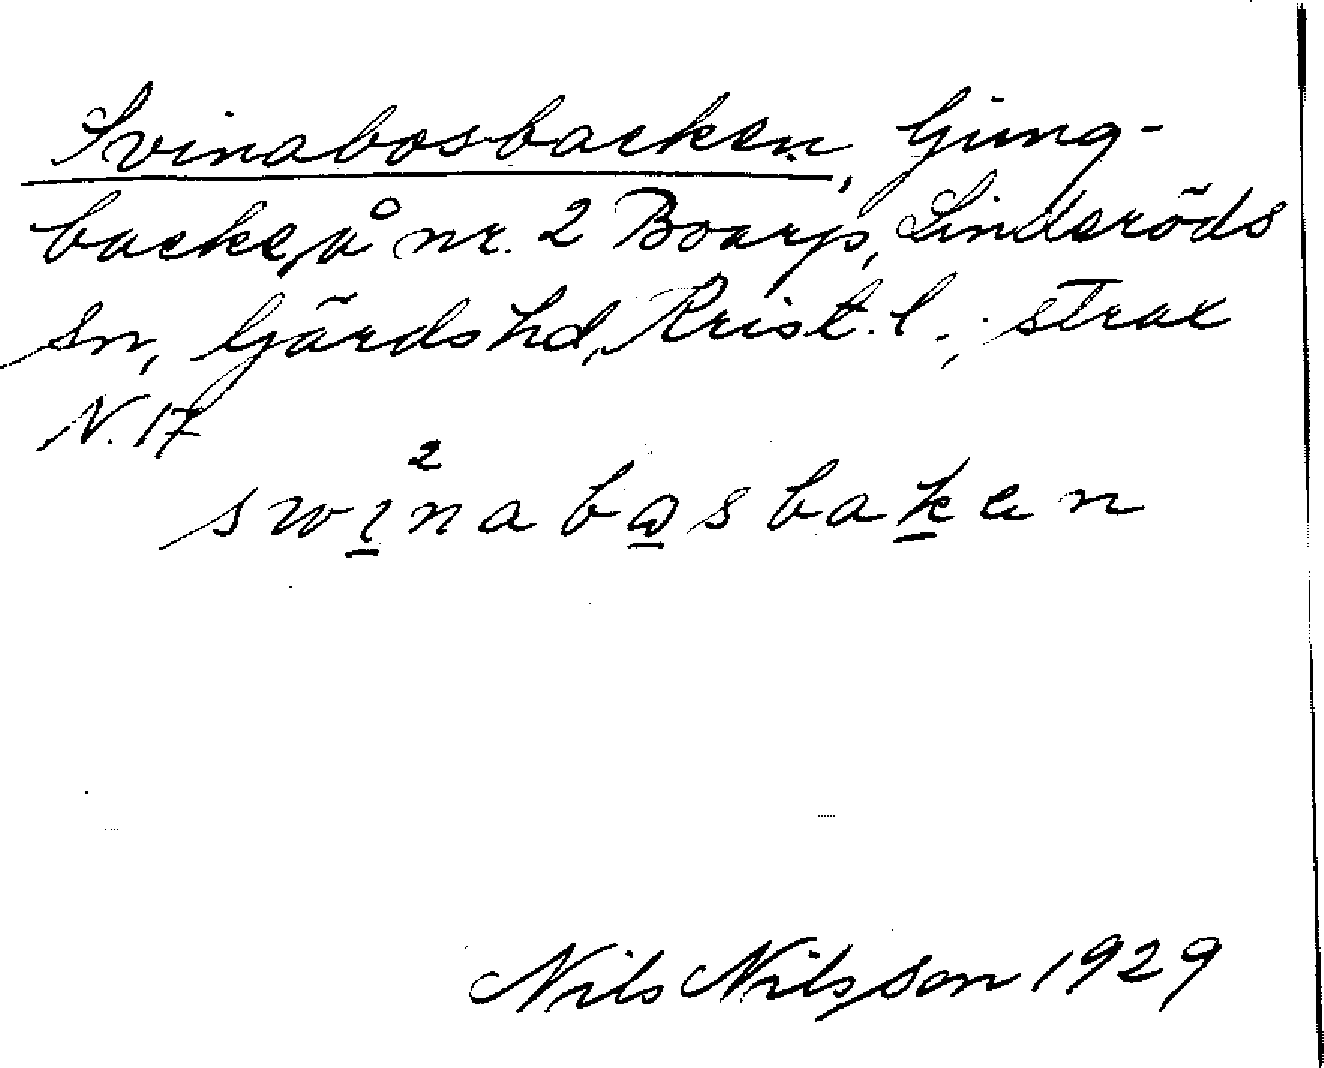 Svinabosbacken, ljung-
backe på nr. 2 Boarp, Linderöds
sn, Gärds hd, Krist. l., strax
N. 17
2
swinabosbaken
Nils Nilsson 1929